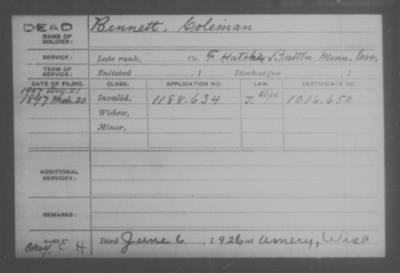 DEAD
NAME OF SOLDIER: Bennett, Coleman
SERVICE: Late rank, Co. F Hatch's Battln. Minn. Cav.
TERM OF SERVICE: Enlisted , 1 Discharged , 1
DATE OF FILING. CLASS. APPLICATION NO. LAW. CERTIFICATE NO.
1907 Aug. 21
1897 Mch. 20 Invalid, 1188.634 J. Age 1016.650
Widow,
Minor,
ADDITIONAL SERVICES:
REMARKS:
C H Died June 6, 1926 at Amery, Wisc